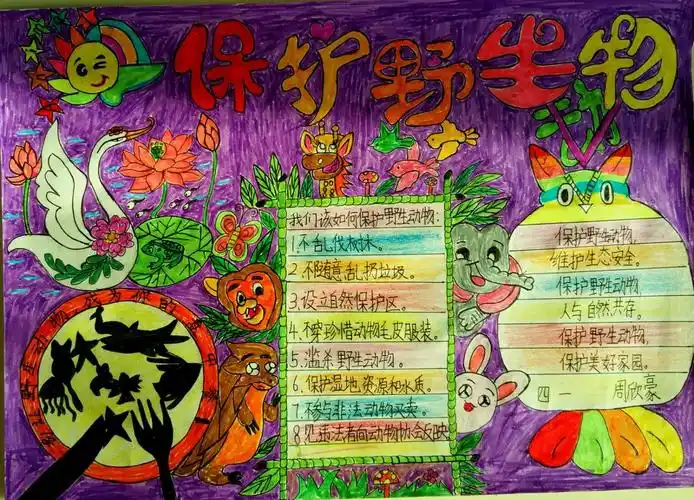 保护野生动物
野生动物成为你的
我们该如何保护野生动物:
1.不乱伐树木。
2.不随意乱扔垃圾。
3.设立自然保护区。
4.不穿珍惜动物毛皮服装。
5.滥杀野生动物。
6.保护湿地、资源和水质。
7.不参与非法动物买卖。
8.违法者向动物协会反映
保护野生动物,
维护生态安全。
保护野生动物
人与自然共存。
保护野生动物,
保护美好家园。
四一 周欣豪